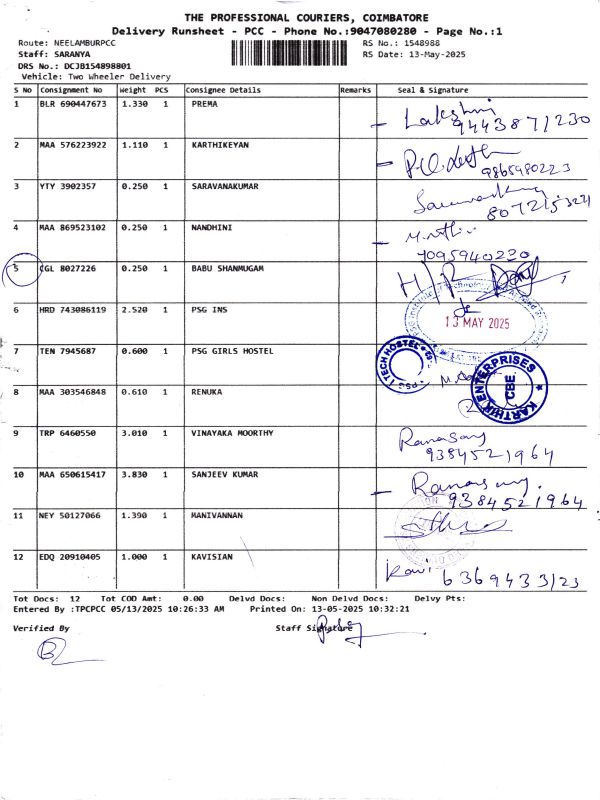 THE PROFESSIONAL COURIERS, COIMBATORE
Delivery Runsheet - PCC - Phone No.:9047080280 - Page No.:1
Route: NEELAMBURPCC
RS No.: 1548988
Staff: SARANYA
RS Date: 13-May-2025
DRS No.: DCJB154898801
Vehicle: Two Wheeler Delivery
S No Consignment No Weight PCS Consignee Details Remarks Seal & Signature
1 BLR 690447673 1.330 1 PREMA
Lakshmi
9443871230
2 MAA 576223922 1.110 1 KARTHIKEYAN
9865980223
3 YTY 3902357 0.250 1 SARAVANAKUMAR
4 MAA 869523102 0.250 1 NANDHINI
7095940220
5 CGL 8027226 0.250 1 BABU SHANMUGAM
6 HRD 743086119 2.520 1 PSG INS
13 MAY 2025
7 TEN 7945687 0.600 1 PSG GIRLS HOSTEL
PSG TECH HOSTEL
KARTHIK ENTERPRISES
CBE
8 MAA 303546848 0.610 1 RENUKA
9 TRP 6460550 3.010 1 VINAYAKA MOORTHY
Ramasamy
9384521964
10 MAA 650615417 3.830 1 SANJEEV KUMAR
Ramasamy.
9384521964
11 NEY 50127066 1.390 1 MANIVANNAN
12 EDQ 20910405 1.000 1 KAVISIAN
Kavi
Tot Docs: 12 Tot COD Amt: 0.00 Delvd Docs: Non Delvd Docs: Delvy Pts:
Entered By :TPCPCC 05/13/2025 10:26:33 AM Printed On: 13-05-2025 10:32:21
Verified By Staff Signature